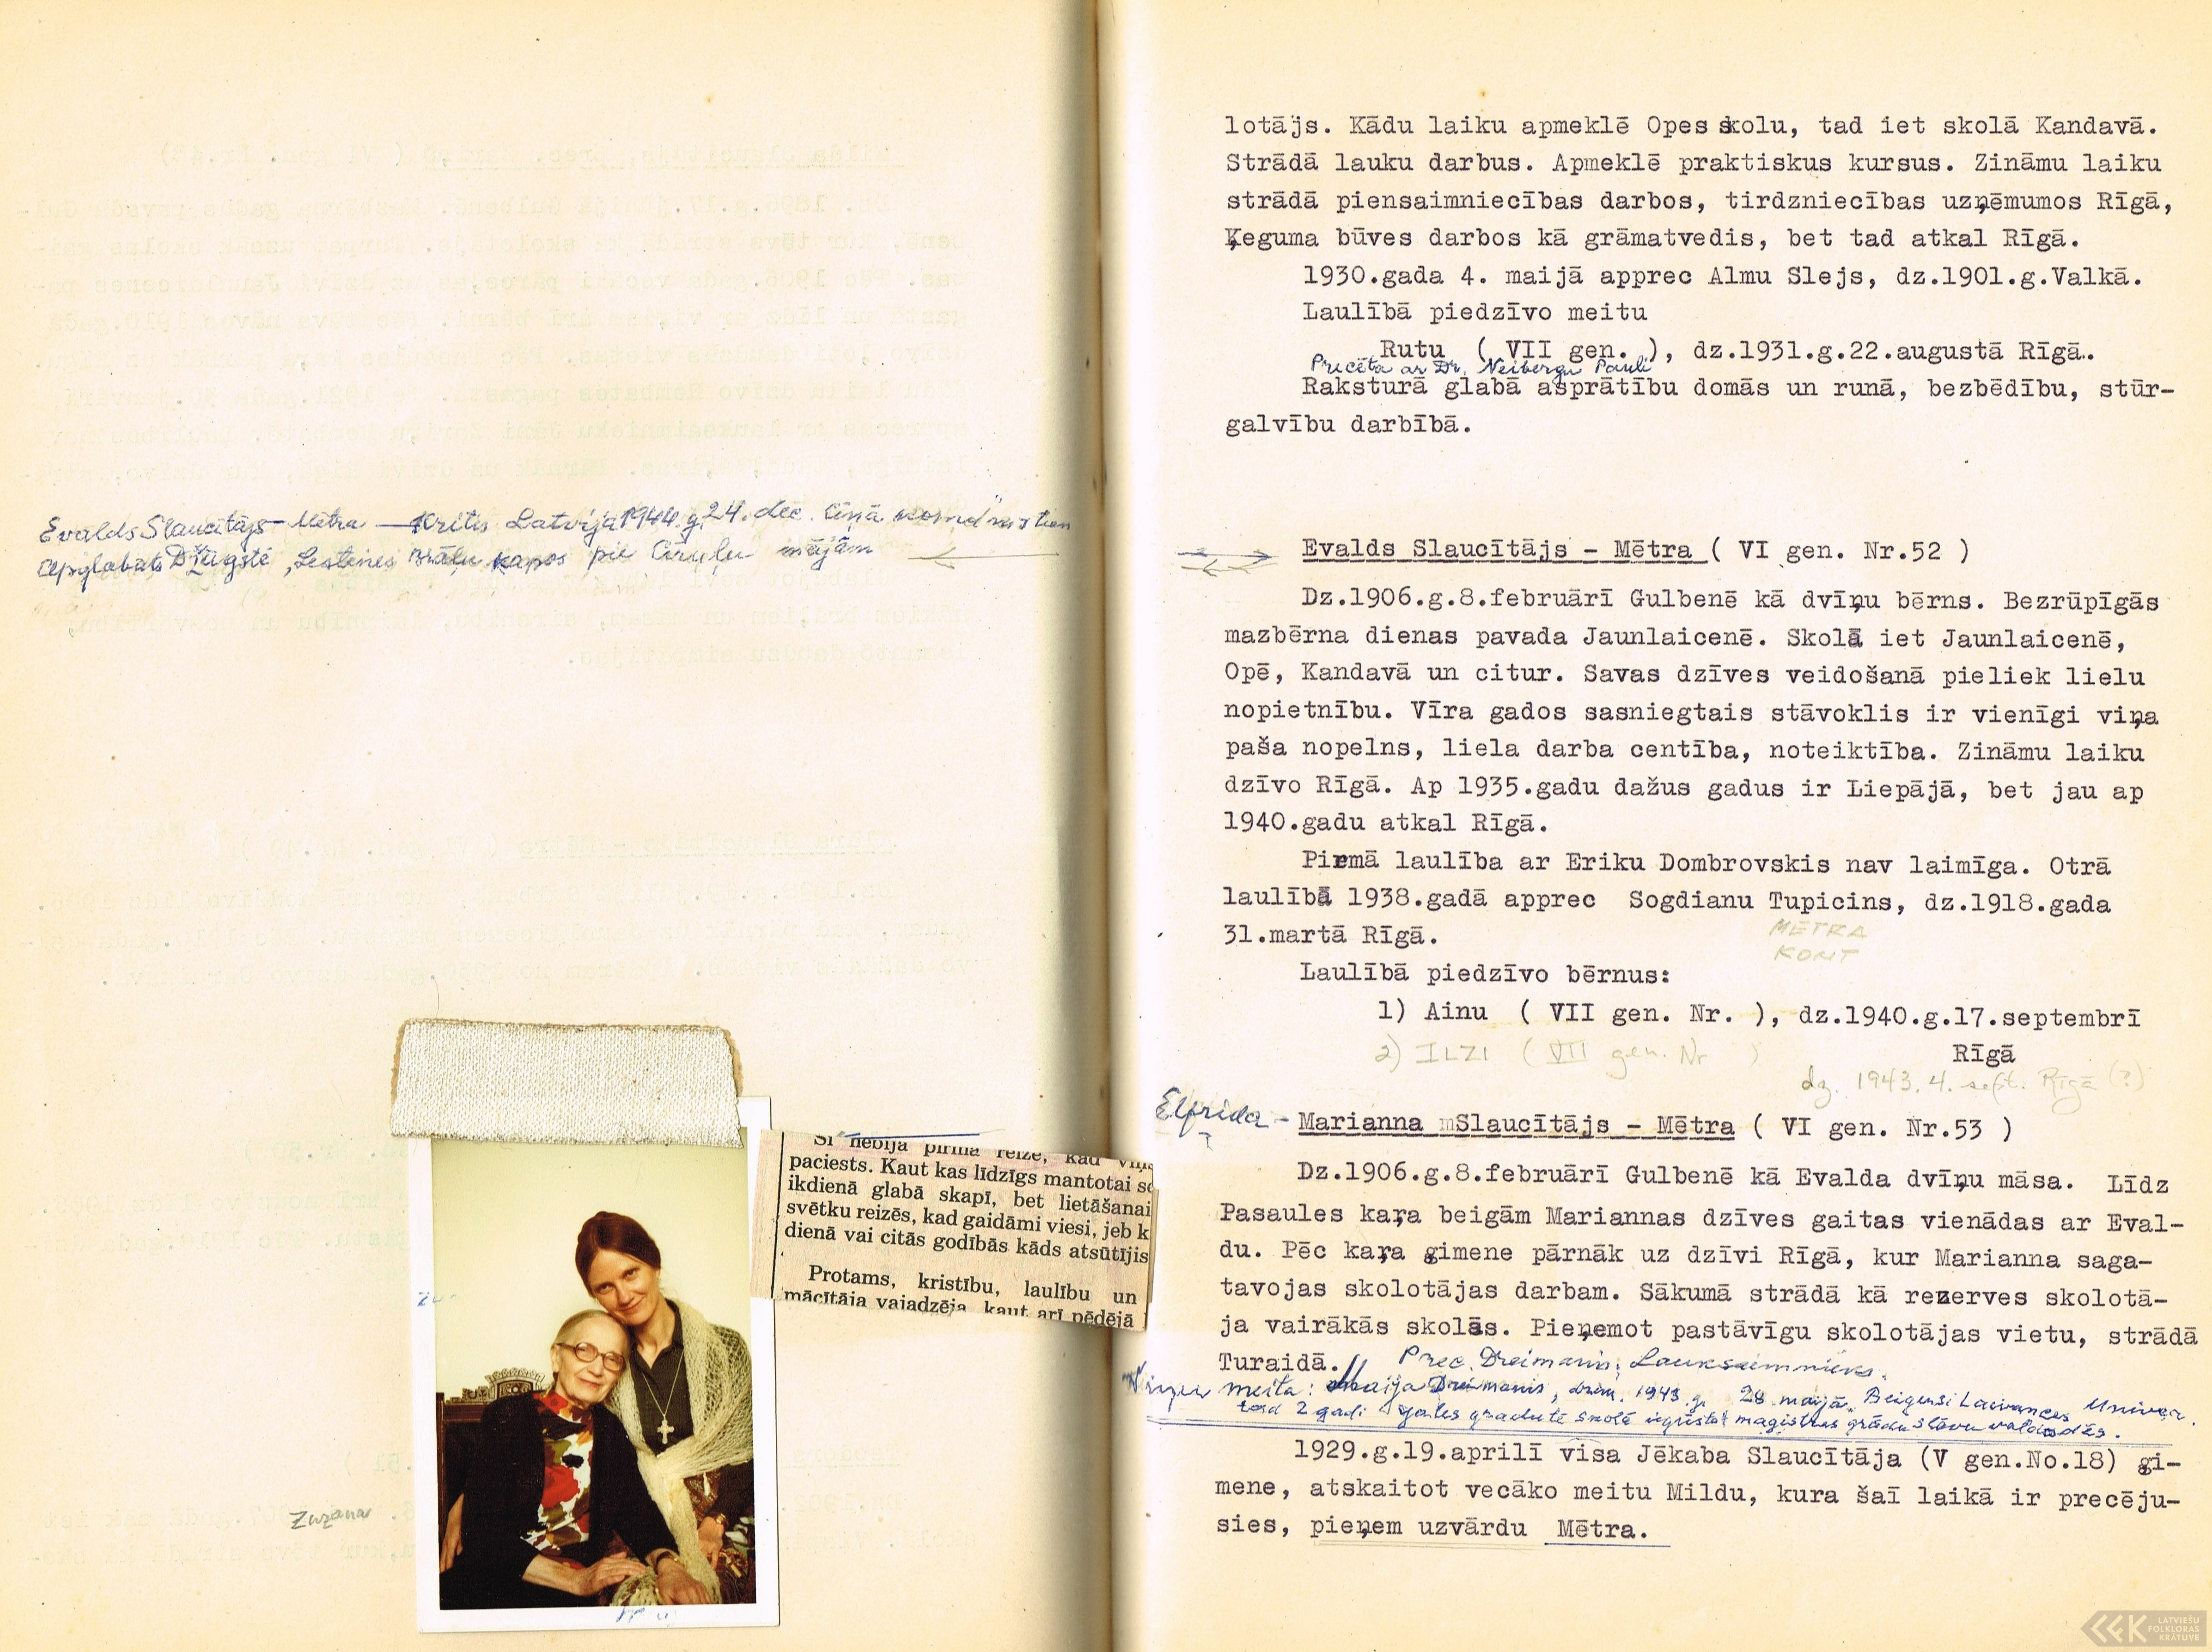 Evalds Slaucītājs - Mētra - Kritis Latvijā 1944.g. 24. dec. cīņā
Apglabāts Džūgstē, Lestenes Brāļu kapos pie Cīruļu mājām
Zuzana
Šī nebija pirmā reize, kad
paciests. Kaut kas līdzīgs mantotai
ikdienā glabā skapī, bet lietāšanai
svētku reizēs, kad gaidāmi viesi, jeb k
dienā vai citās godībās kāds atsūtījis
Protams, kristību, laulību un
mācītāja vajadzēja, kaut arī pēdējā
lotājs. Kādu laiku apmeklē Opes skolu, tad iet skolā Kandavā.
Strādā lauku darbus. Apmeklē praktiskus kursus. Zināmu laiku
strādā piensaimniecības darbos, tirdzniecības uzņēmumos Rīgā,
Ķeguma būves darbos kā grāmatvedis, bet tad atkal Rīgā.
1930.gada 4. maijā apprec Almu Slejs, dz.1901.g.Valkā.
Laulībā piedzīvo meitu
Rutu ( VII gen. ), dz.1931.g.22.augustā Rīgā.
Precēta ar Dr. Neibergu Pauli
Raksturā glabā asprātību domās un runā, bezbēdību, stūr-
galvību darbībā.
Evalds Slaucītājs - Mētra ( VI gen. Nr.52 )
Dz.1906.g.8.februārī Gulbenē kā dvīņu bērns. Bezrūpīgās
mazbērna dienas pavada Jaunlaicenē. Skolā iet Jaunlaicenē,
Opē, Kandavā un citur. Savas dzīves veidošanā pieliek lielu
nopietnību. Vīra gados sasniegtais stāvoklis ir vienīgi viņa
paša nopelns, liela darba centība, noteiktība. Zināmu laiku
dzīvo Rīgā. Ap 1935.gadu dažus gadus ir Liepājā, bet jau ap
1940.gadu atkal Rīgā.
Pirmā laulība ar Eriku Dombrovskis nav laimīga. Otrā
laulībā 1938.gadā apprec Sogdianu Tupicins, dz.1918.gada
31.martā Rīgā.
MĒTRA
KONT
Laulībā piedzīvo bērnus:
1) Ainu ( VII gen. Nr. ), dz.1940.g.17.septembrī
Rīgā
2) ILZI ( VII gen. Nr )
dz. 1943. 4. sept. Rīgā (?)
Elfrida - Marianna mSlaucītājs - Mētra ( VI gen. Nr.53 )
Dz.1906.g.8.februārī Gulbenē kā Evalda dvīņu māsa. Līdz
Pasaules kaŗa beigām Mariannas dzīves gaitas vienādas ar Eval-
du. Pēc kaŗa ģimene pārnāk uz dzīvi Rīgā, kur Marianna saga-
tavojas skolotājas darbam. Sākumā strādā kā rezerves skolotā-
ja vairākās skolās. Pieņemot pastāvīgu skolotājas vietu, strādā
Turaidā. Prec. Dreimanis, Lauksaimnieks.
Viņu meita: Maija Dreimanis, dzim. 1943.g. 28. maijā. Beigusi
tad 2 gadi skolā magistres grādu
1929.g.19.aprilī visa Jēkaba Slaucītāja (V gen.No.18) ģi-
mene, atskaitot vecāko meitu Mildu, kura šaī laikā ir precēju-
sies, pieņem uzvārdu Mētra.
LATVIEŠU
FOLKLORAS
KRĀTUVE